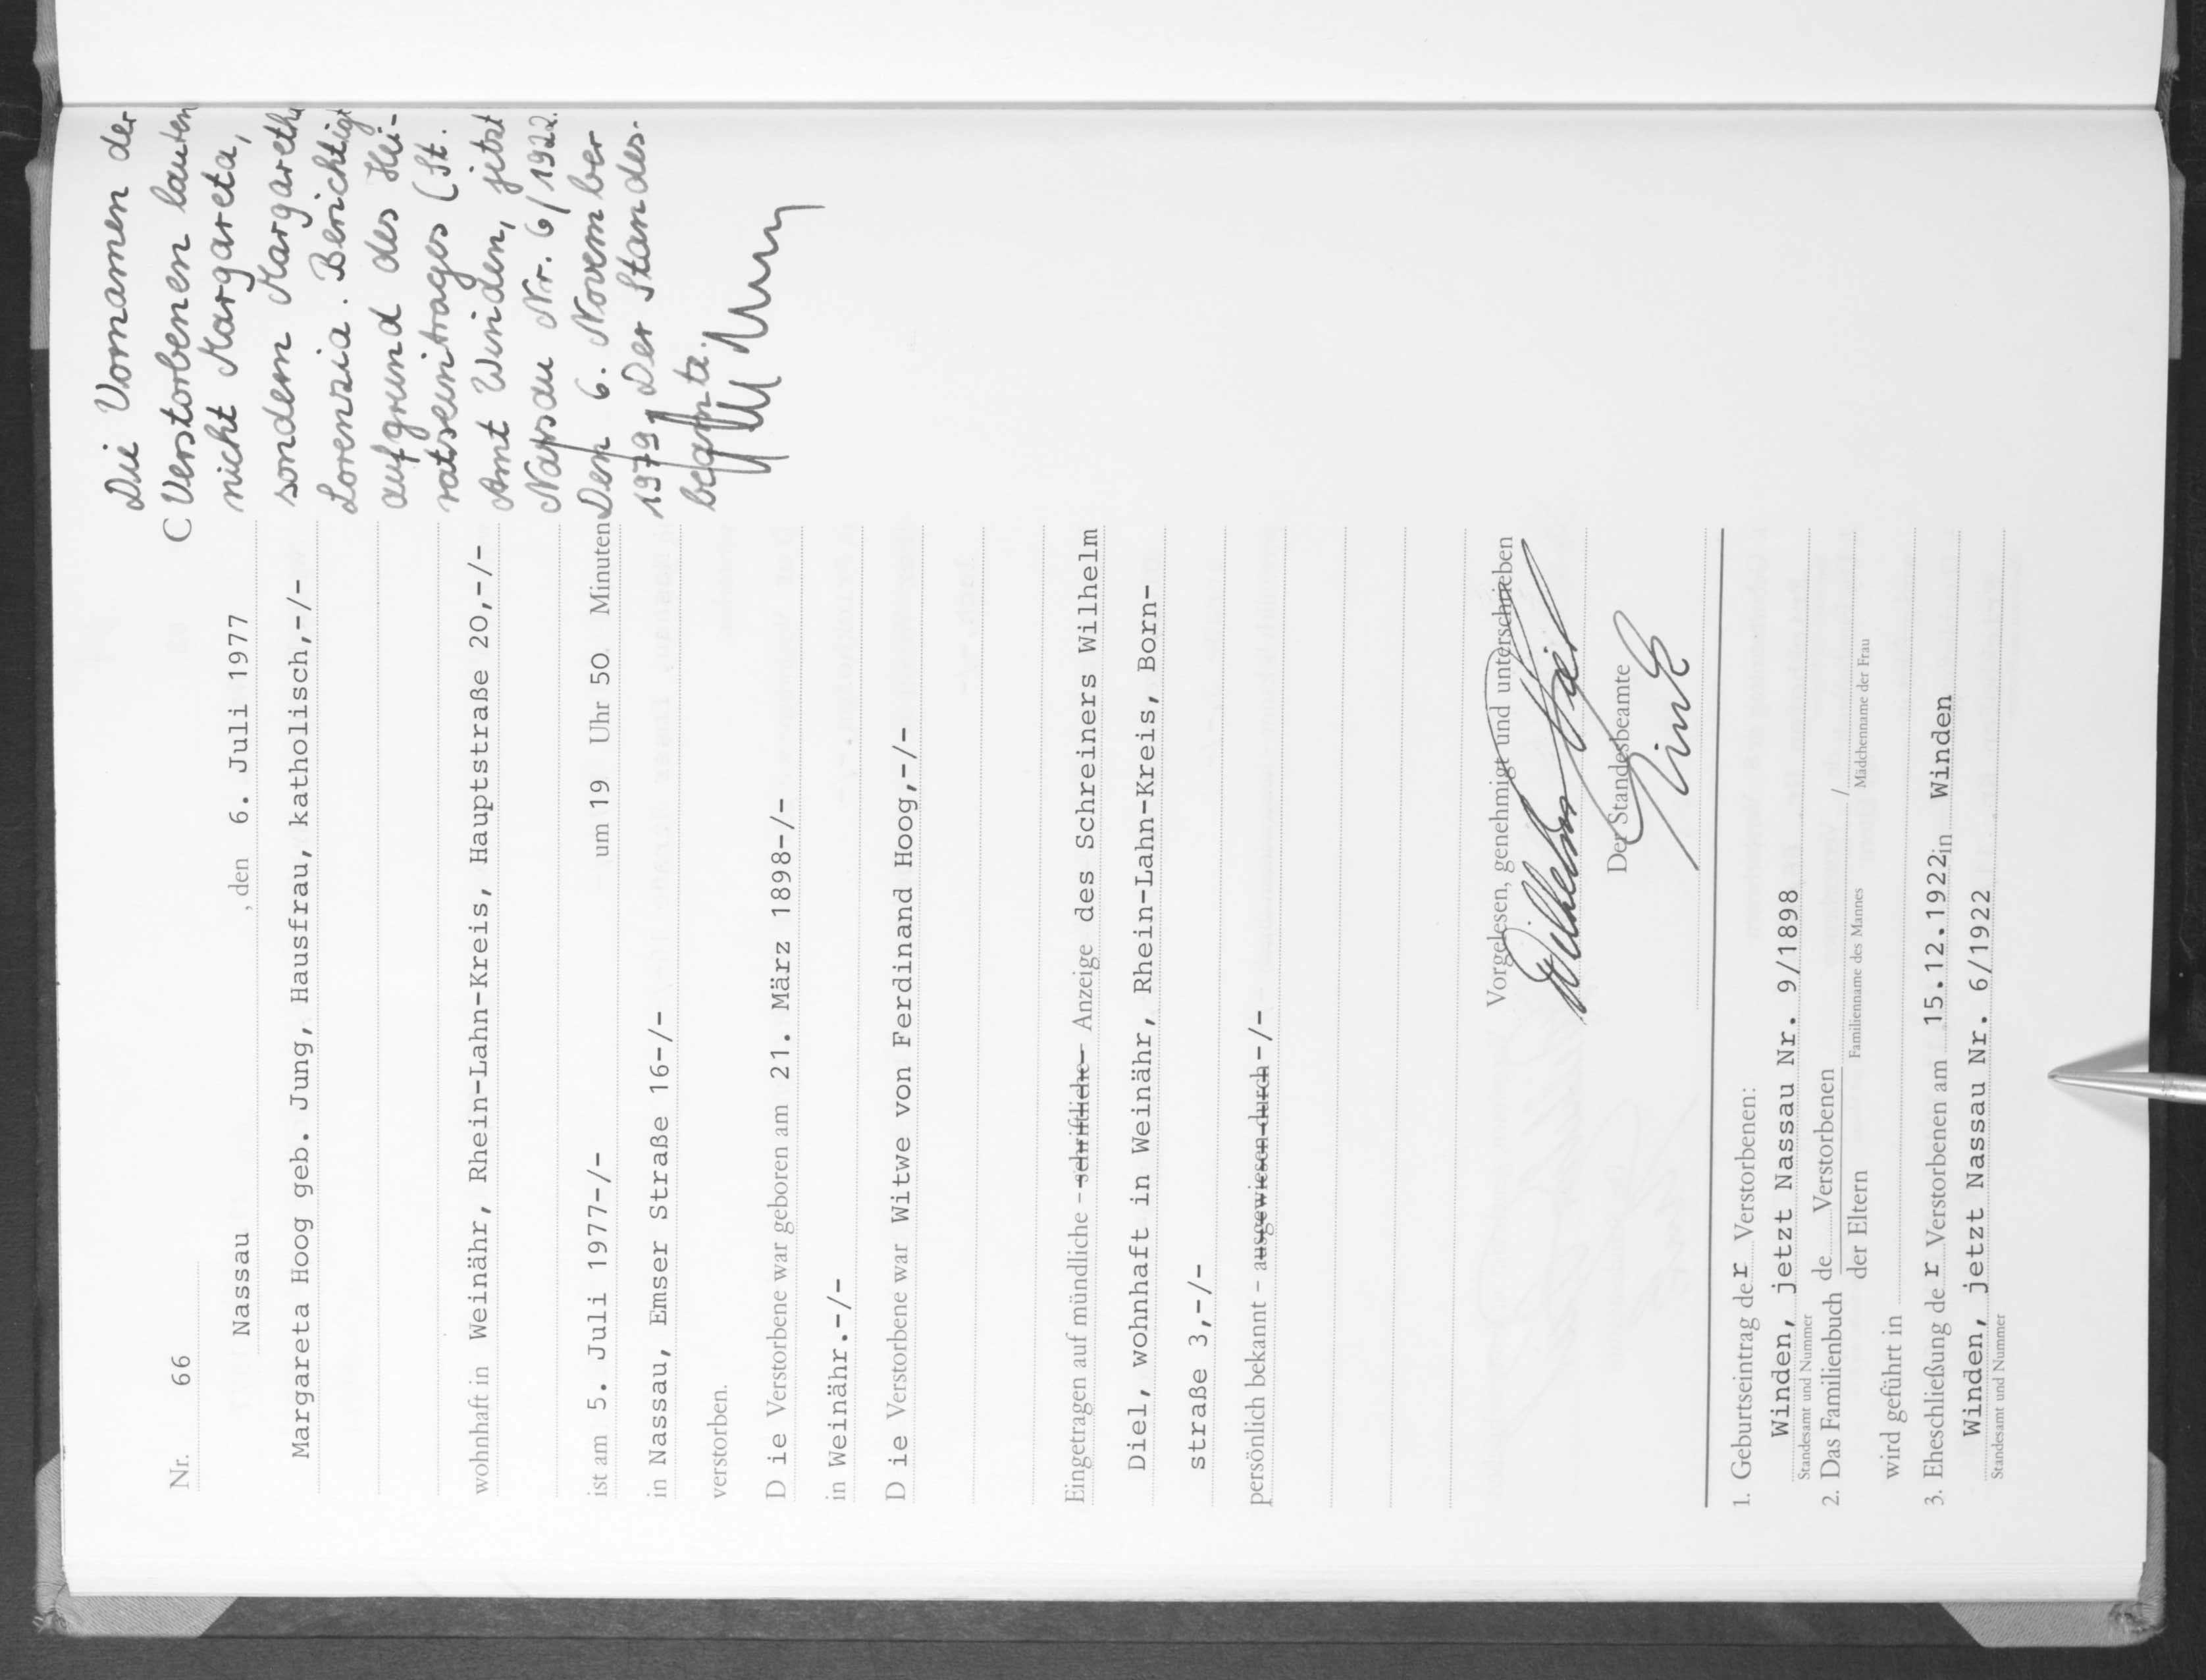 Nr. 66 C
Nassau , den 6. Juli 1977
Margareta Hoog geb. Jung, Hausfrau, katholisch,-/-
wohnhaft in Weinähr, Rhein-Lahn-Kreis, Hauptstraße 20,-/-
ist am 5. Juli 1977-/- um 19 Uhr 50 Minuten
in Nassau, Emser Straße 16-/-
verstorben.
D ie Verstorbene war geboren am 21. März 1898-/-
in Weinähr.-/-
D ie Verstorbene war Witwe von Ferdinand Hoog,-/-
Eingetragen auf mündliche - schriftliche - Anzeige des Schreiners Wilhelm
Diel, wohnhaft in Weinähr, Rhein-Lahn-Kreis, Born-
straße 3,-/-
persönlich bekannt - ausgewiesen durch -/-
Vorgelesen, genehmigt und unterschrieben
Wilhelm Diel
Der Standesbeamte
1. Geburtseintrag der Verstorbenen:
Winden, jetzt Nassau Nr. 9/1898
Standesamt und Nummer
2. Das Familienbuch de Verstorbenen /
der Eltern Familienname des Mannes Mädchenname der Frau
wird geführt in
3. Eheschließung der Verstorbenen am 15.12.1922 in Winden
Winden, jetzt Nassau Nr. 6/1922
Standesamt und Nummer
Die Vornamen der
Verstorbenen lauten
nicht Margareta,
sondern Margaretha
Lorenzia. Berichtigt
aufgrund des Hei-
ratseintrages (St.
Amt Winden, jetzt
Nassau Nr. 6/1922.
Den 6. November
1979 Der Standes-
beamte.